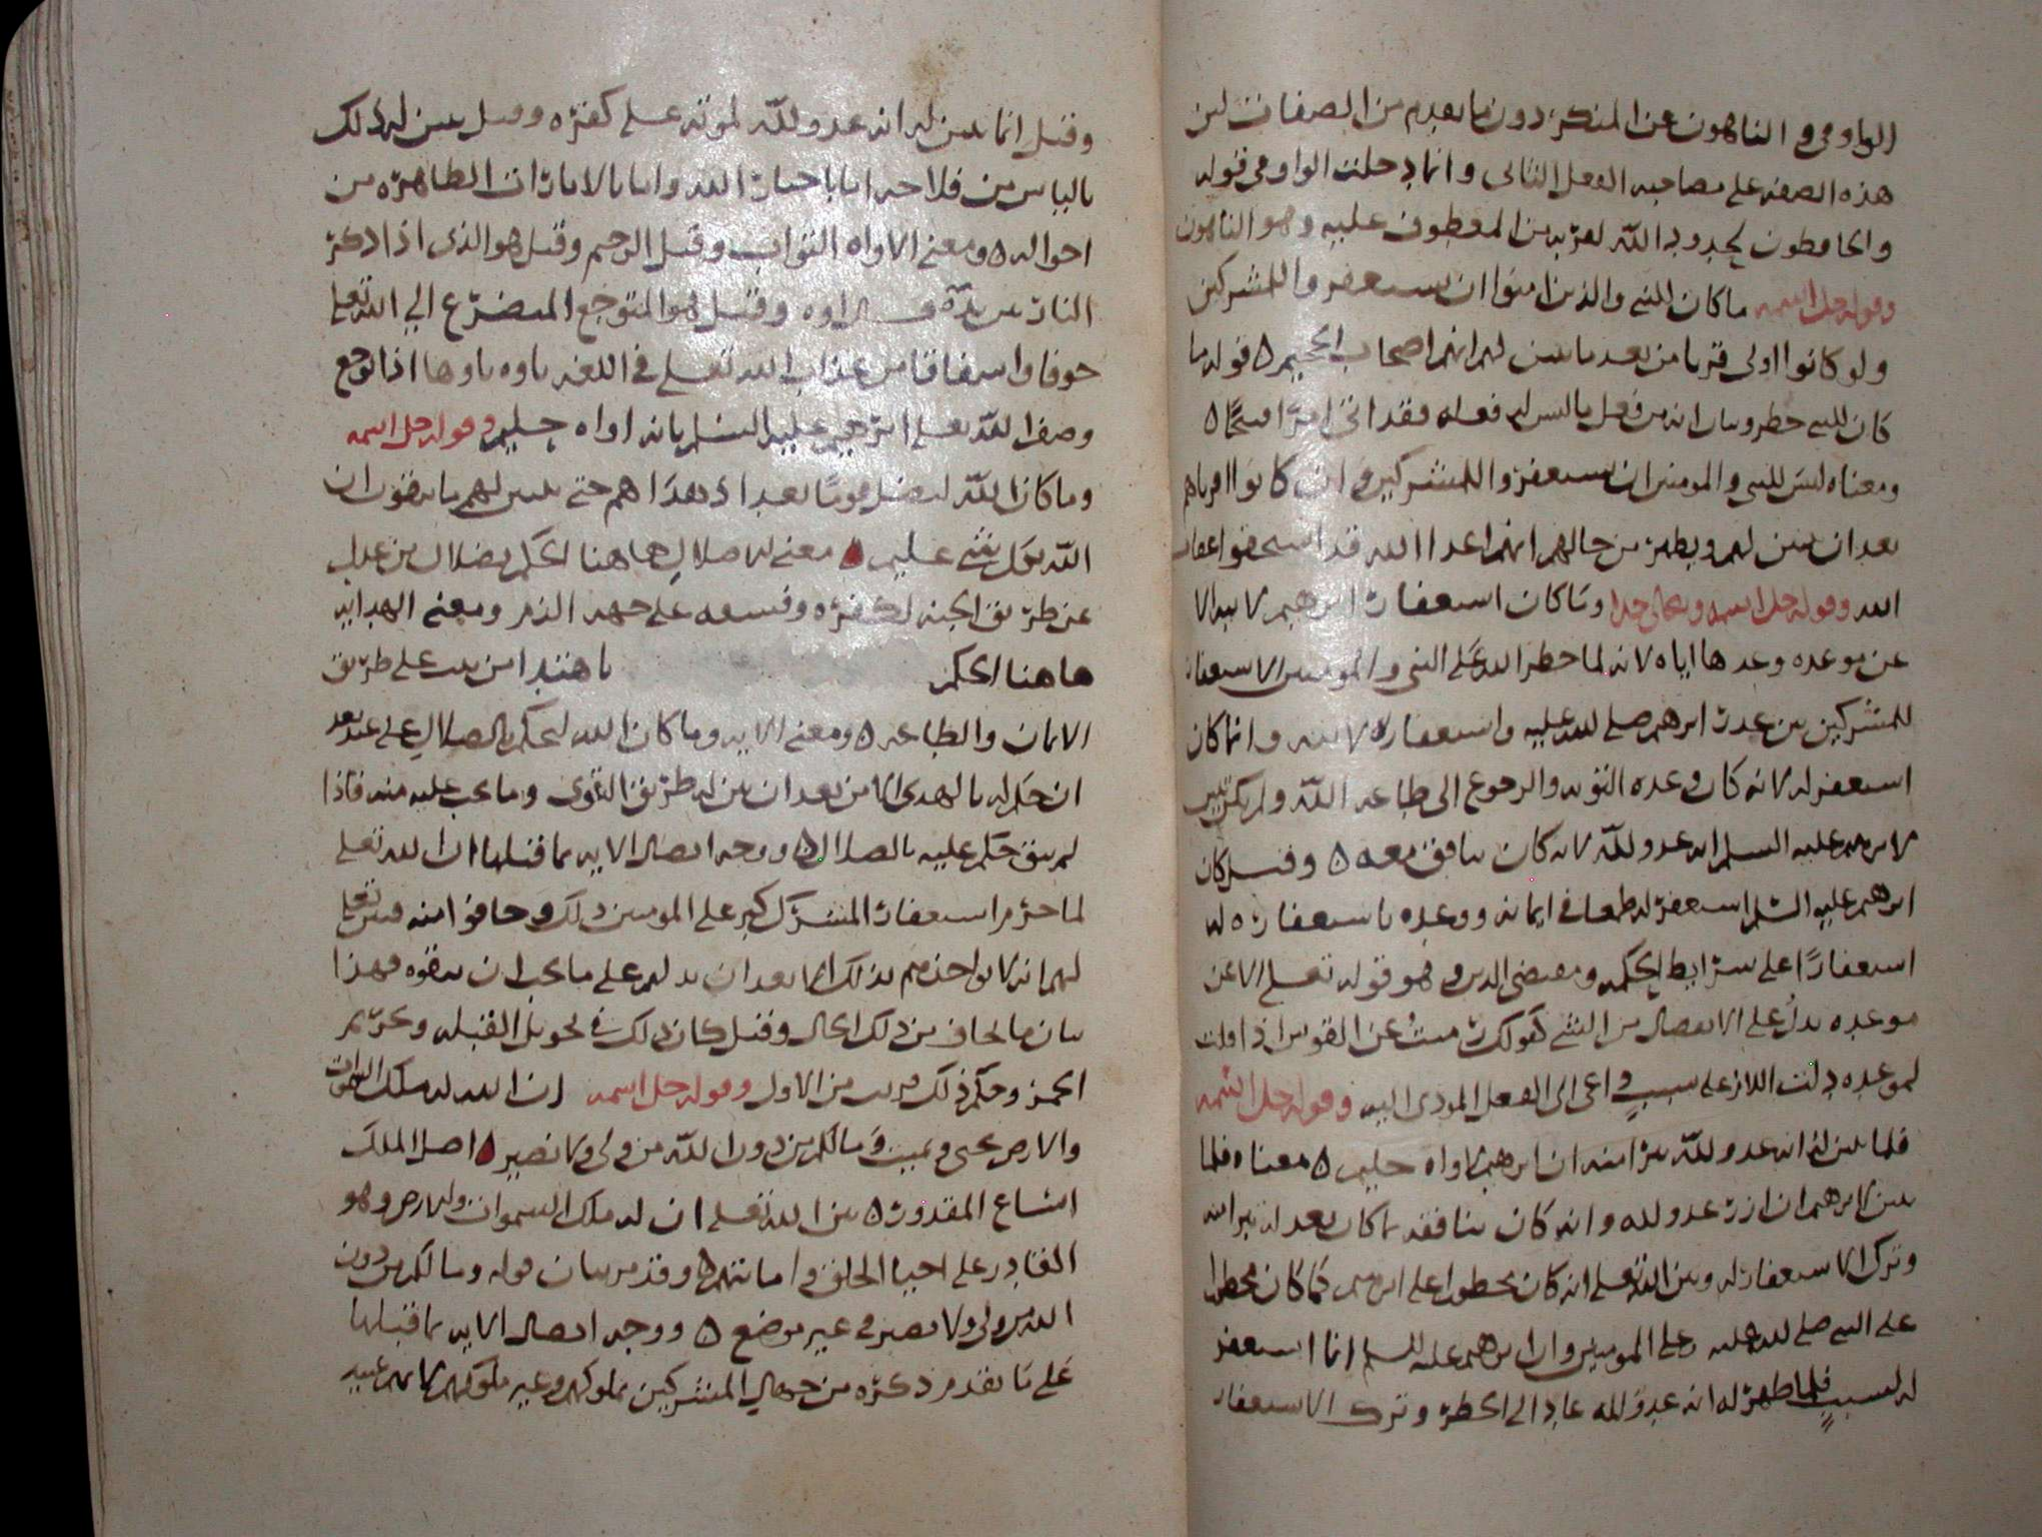 الواو في والناهون عن المنكر دون ما تقدم من الصفات لان
هذه الصفه على مصاحبه الفعل الثاني وانما دخلت الواو في قوله
والحافظون لحدود الله لقربه من المعطوف عليه وهو الناهون
وقوله جل اسمه ما كان للنبي والذين امنوا ان يستغفروا للمشركين
ولو كانوا اولى قربا من بعد ما تبين لهم انهم اصحاب الجحيم ٥ قوله ما
كان للنبي حظر وبيان انه من فعل ما ليس له فعله فقد اتى امرا قبيحًا ٥
ومعناه ليس للنبي والمومنين ان يستغفروا للمشركين وان كانوا اقرباهم
بعد ان تبين لهم ويظهر من حالهم انهم اعدا الله قد استحقوا عقاب
الله وقوله جل اسمه وتعالى جدا وما كان استغفار ابرهيم لابيه الا
عن موعده وعدها اياه لانه لما حظر الله على النبي والمومنين الاستغفار
للمشركين بين عذر ابرهيم صلى الله عليه واستغفاره لابيه وانما كان
استغفر له لانه كان وعده التوبه والرجوع الى طاعه الله ولم يكن تبين
لابرهيم عليه السلم انه عدو لله لانه كان ينافق معه ٥ وقيل كان
ابرهيم عليه السلم استغفر له طمعا في ايمانه ووعده باستغفاره له
استغفارًا على شرايط الحكمه ومقتضى الدين وهو قوله تعلى الا عن
موعده يدل على الانفصال من الشي كقولك رميتُ عن القوس اذا قلت
لموعده دلت اللام على سببٍ داعي الى الفعل المودي اليه وقوله جل اسمه
فلما تبين له انه عدو لله تبرا منه ان ابرهيم لاواه حليم ٥ معناه فلما
تبين لابرهيم ان ازر عدو لله وانه كان ينافقه بما كان بعد له تبرا منه
وترك الاستغفار له وبين الله تعلى انه كان محظورا على ابرهيم كما كان محظورا
على النبي صلى الله عليه وعلى المومنين وان ابرهيم عليه السلم انما استغفر
له لسببٍ فلما ظهر له انه عدو لله عاد الى الحظر وترك الاستغفار
وقيل انما تبين له انه عدو لله لموته على كفره وقيل تبين له ذلك
بالياس من فلاحه اما باخبار الله واما بالامارات الظاهره من
احواله ٥ ومعنى الاواه التواب وقيل الرحيم وقيل هو الذي اذا ذكر
النار قال اوه وقيل هو المتوجع المتضرع الى الله تعلى
خوفا واشفاقا من عذاب الله تعلى في اللغه تاوه تاوها اذا توجع
وصف الله تعلى ابرهيم عليه السلم بانه اواه حليم وقوله جل اسمه
وما كان الله ليضل قومًا بعد اذ هداهم حتى يبين لهم ما يتقون ان
الله بكل شي عليم ٥ معنى الضلال هاهنا الحكم بضلال من عدل
عن طريق الجنه لكفره وفسقه على جهه الذم ومعنى الهدايه
هاهنا الحكم باهتدا من ثبت على طريق
الايمان والطاعه ٥ ومعنى الايه وما كان الله ليحكم بالضلال على عبد بعد
ان حكم له بالهدى الا من بعد ان بين له طريق التقوى وما يجب عليه منه فاذا
لم يتق حكم عليه بالضلال ٥ ووجه اتصال الايه بما قبلها ان الله تعلى
لما حرم استغفار المشرك كبر على المومنين ذلك وخافوا منه فبين تعلى
لهم انه لا يواخذهم بذلك الا بعد ان يدلهم على ما يجب ان يتقوه فهذا
بيان ما يخاف من ذلك الحال وقيل كان ذلك في تحويل القبله وتحريم
الخمر وحكم ذلك قريب من الاول وقوله جل اسمه ان الله له ملك السموات
والارض يحي ويميت وما لكم من دون الله من ولي ولا نصير ٥ اصل الملك
اتساع المقدور ٥ بين الله تعلى ان له ملك السموات والارض وهو
القادر على احيا الخلق واماتتهم ٥ وقد مر بيان قوله وما لكم من دون
الله من ولي ولا نصير في غير موضع ٥ ووجه اتصال الايه بما قبلها
على ما تقدم ذكره من جهاد المشركين ملوكهم وغير ملوكهم لانهم عبيد